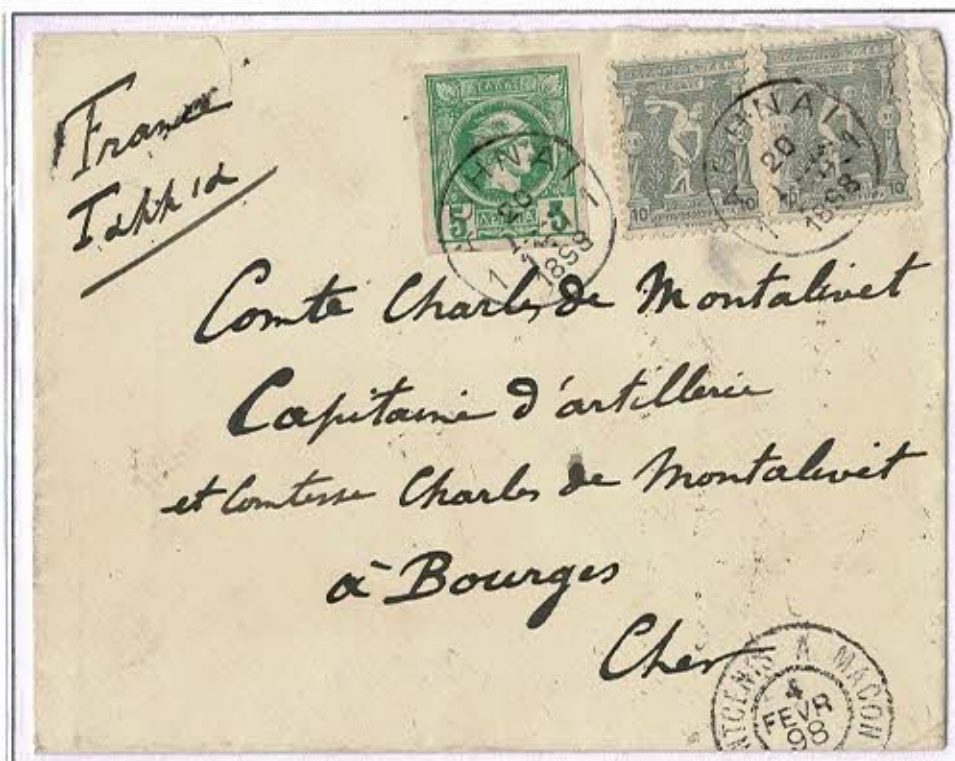 France
Γαλλία
5 ΛΕΠΤΑ 5
ΑΘΗΝΑΙ 1
20
1898
10 10
10 10
ΑΘΗΝΑΙ 1
20
1898
Comte Charles de Montalivet
Capitaine d'artillerie
et Comtesse Charles de Montalivet
à Bourges
Cher
A MACON
4
FEVR
98